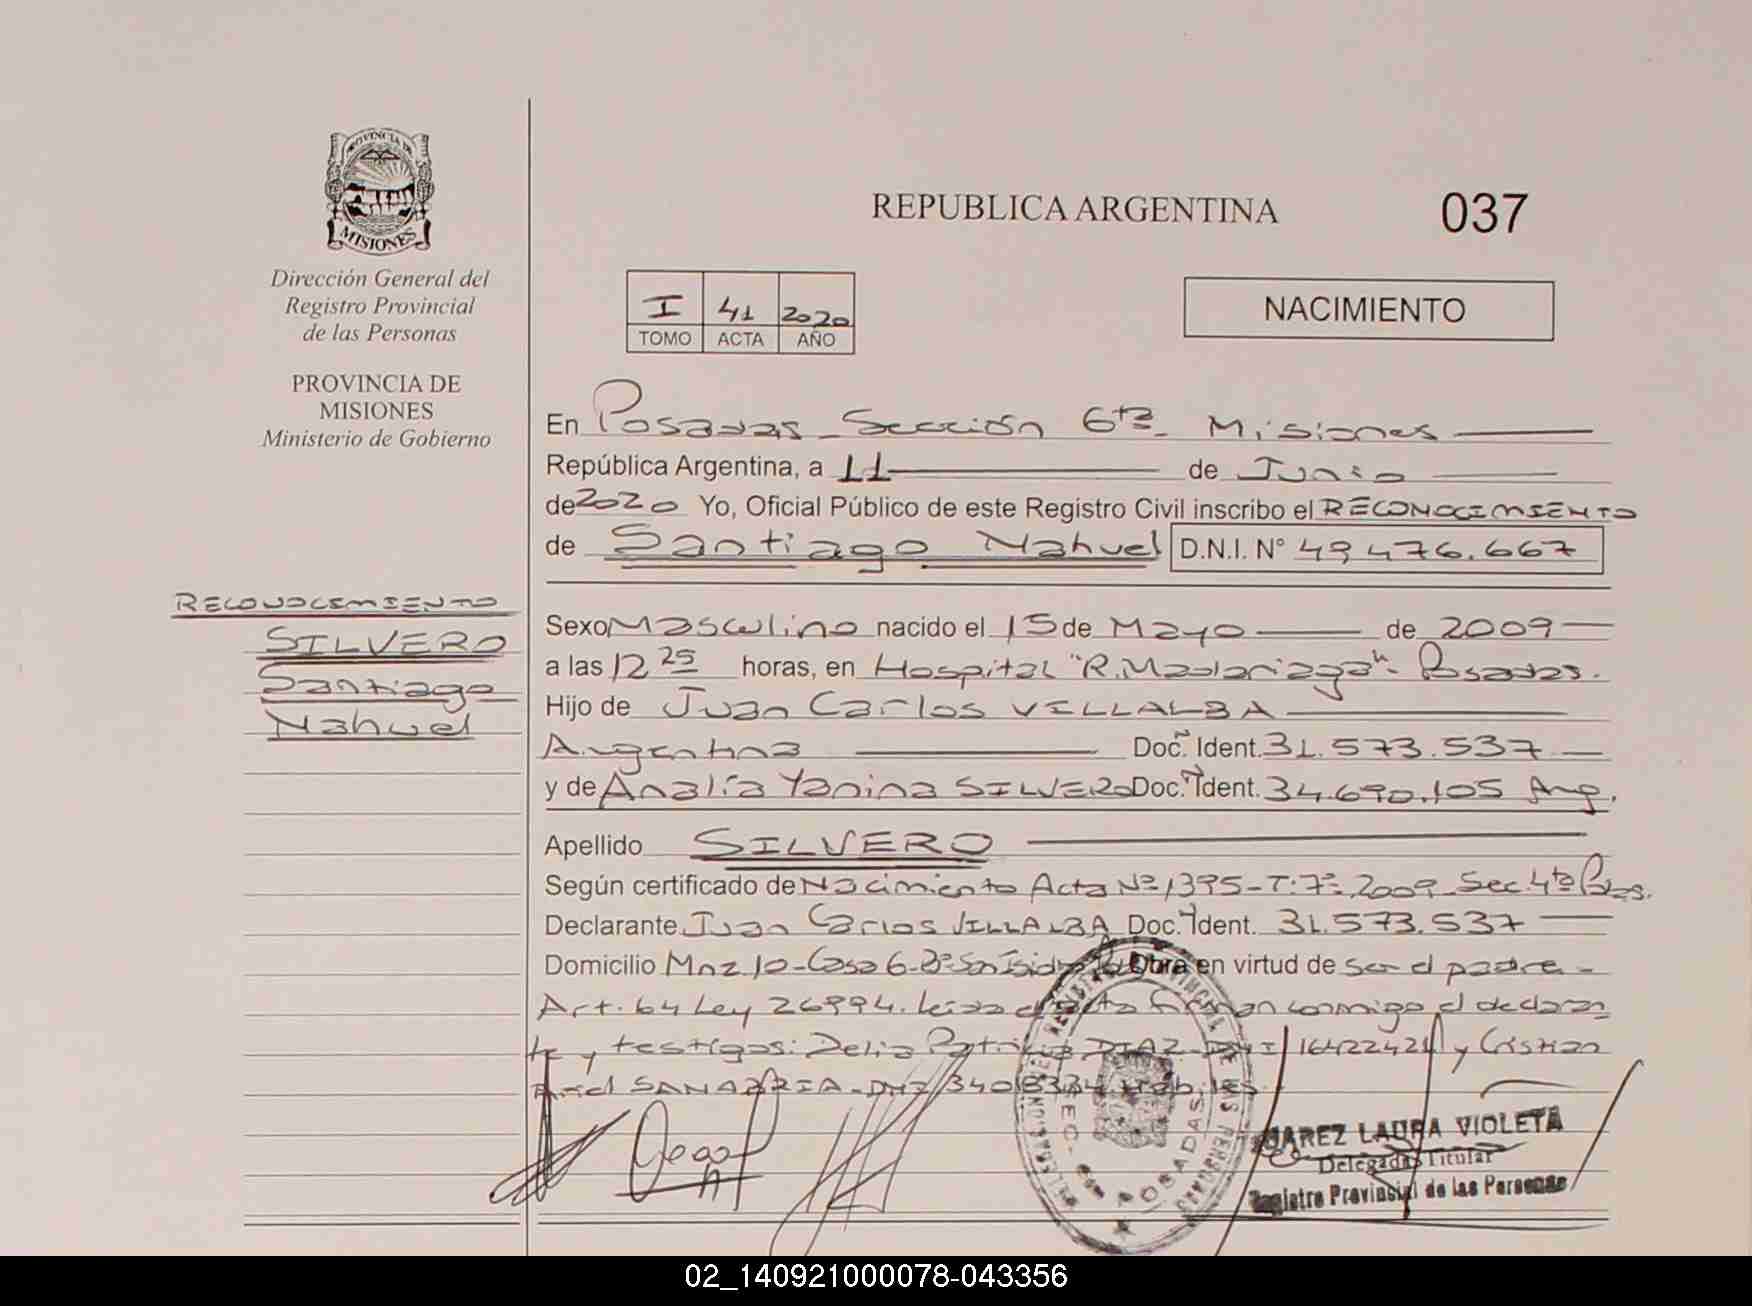 PROVINCIA DE
MISIONES
Dirección General del
Registro Provincial
de las Personas
PROVINCIA DE
MISIONES
Ministerio de Gobierno
RECONOCIMIENTO
SILVERO
Santiago
Nahuel
REPUBLICA ARGENTINA
037
I 41 2020
TOMO ACTA AÑO
NACIMIENTO
En Posadas - Sección 6ta - Misiones
República Argentina, a 11 de Junio
de 2020 Yo, Oficial Público de este Registro Civil inscribo el RECONOCIMIENTO
de Santiago Nahuel D.N.I. N° 49.476.667
Sexo Masculino nacido el 15 de Mayo de 2009
a las 12 25 horas, en Hospital "R. Madariaga" - Posadas.
Hijo de Juan Carlos VILLALBA
Argentina Doc. Ident. 31.573.537
y de Analía Yanina SILVERO Doc. Ident. 34.690.105 Arg.
Apellido SILVERO
Según certificado de Nacimiento Acta Nº 1395 - T: 7º - 2009 - Sec. 4ta Pdas.
Declarante Juan Carlos VILLALBA Doc. Ident. 31.573.537
Domicilio Mnz 10 - Casa 6 - Bº San Isidro Obra en virtud de ser el padre -
Art. 64 Ley 26994. Leida el acta firman conmigo el declaran
te y testigos: Delia Patricia DIAZ - DNI 16422421 y Cristian
SANABRIA - DNI
SEC. POSADAS
SUAREZ LAURA VIOLETA
Delegada Titular
Registro Provincial de las Personas
02_140921000078-043356